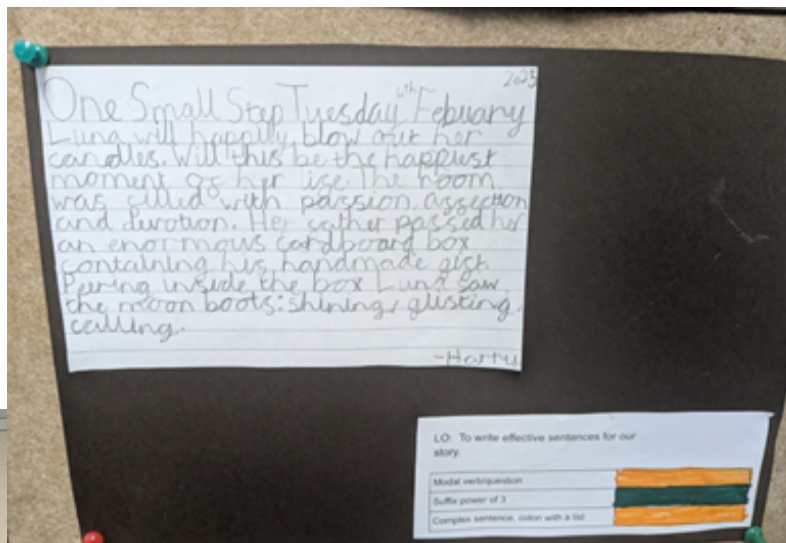 2025
One Small Step Tuesday 4th Febuary
Luna will happily blow out her
candles. Will this be the happiest
moment of her life. The room
was filled with passion, affection
and devotion. Her father passed her
an enormous cardboard box
containing his handmade gift.
Peering inside the box Luna saw
the moon boots: shining, glisting,
calling.
-Harry
LO: To write effective sentences for our
story.
Modal verb/question
Suffix power of 3
Complex sentence, colon with a list